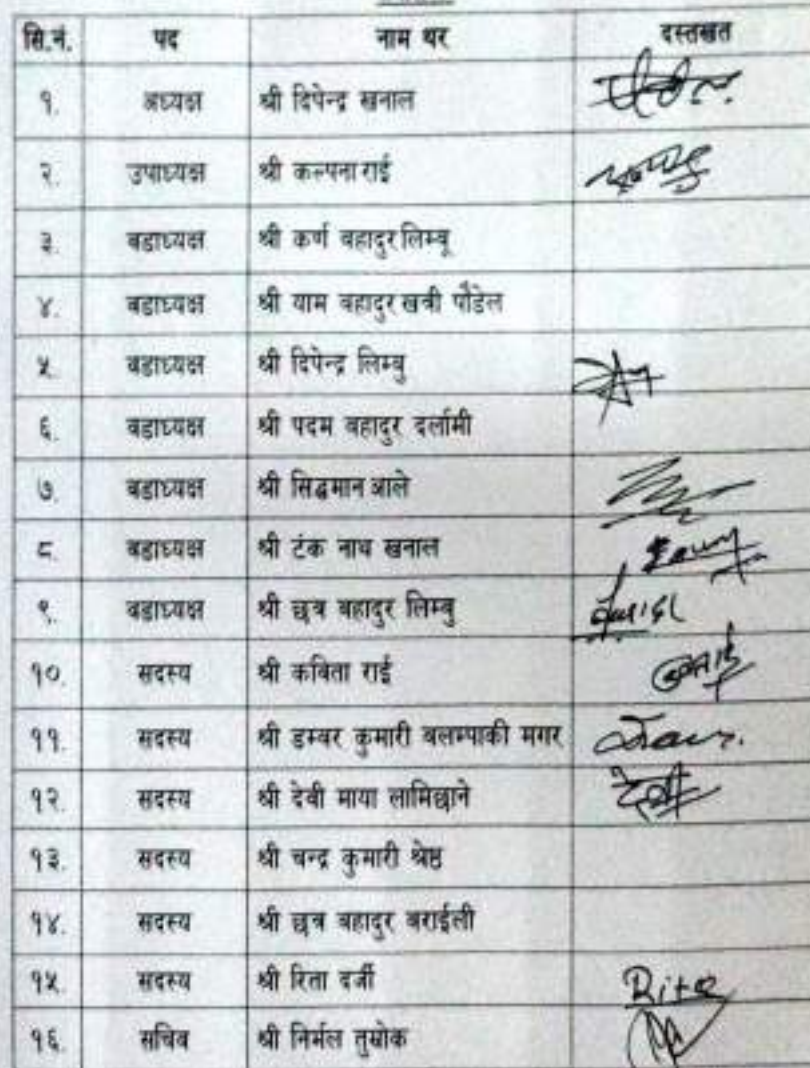 सि.नं. पद नाम थर दस्तखत
१. अध्यक्ष श्री दिपेन्द्र खनाल
२. उपाध्यक्ष श्री कल्पना राई
३. वडाध्यक्ष श्री कर्ण बहादुर लिम्बू
४. वडाध्यक्ष श्री याम बहादुर खत्री पौडेल
५. वडाध्यक्ष श्री दिपेन्द्र लिम्बु
६. वडाध्यक्ष श्री पदम बहादुर दर्लामी
७. वडाध्यक्ष श्री सिद्धमान आले
८. वडाध्यक्ष श्री टंक नाथ खनाल
९. वडाध्यक्ष श्री छत्र बहादुर लिम्बु
१०. सदस्य श्री कबिता राई
११. सदस्य श्री डम्बर कुमारी बलम्पाकी मगर
१२. सदस्य श्री देवी माया लामिछाने देवी
१३. सदस्य श्री चन्द्र कुमारी श्रेष्ठ
१४. सदस्य श्री छत्र बहादुर बराईली
१५. सदस्य श्री रिता दर्जी Rita
१६. सचिव श्री निर्मल तुम्रोक